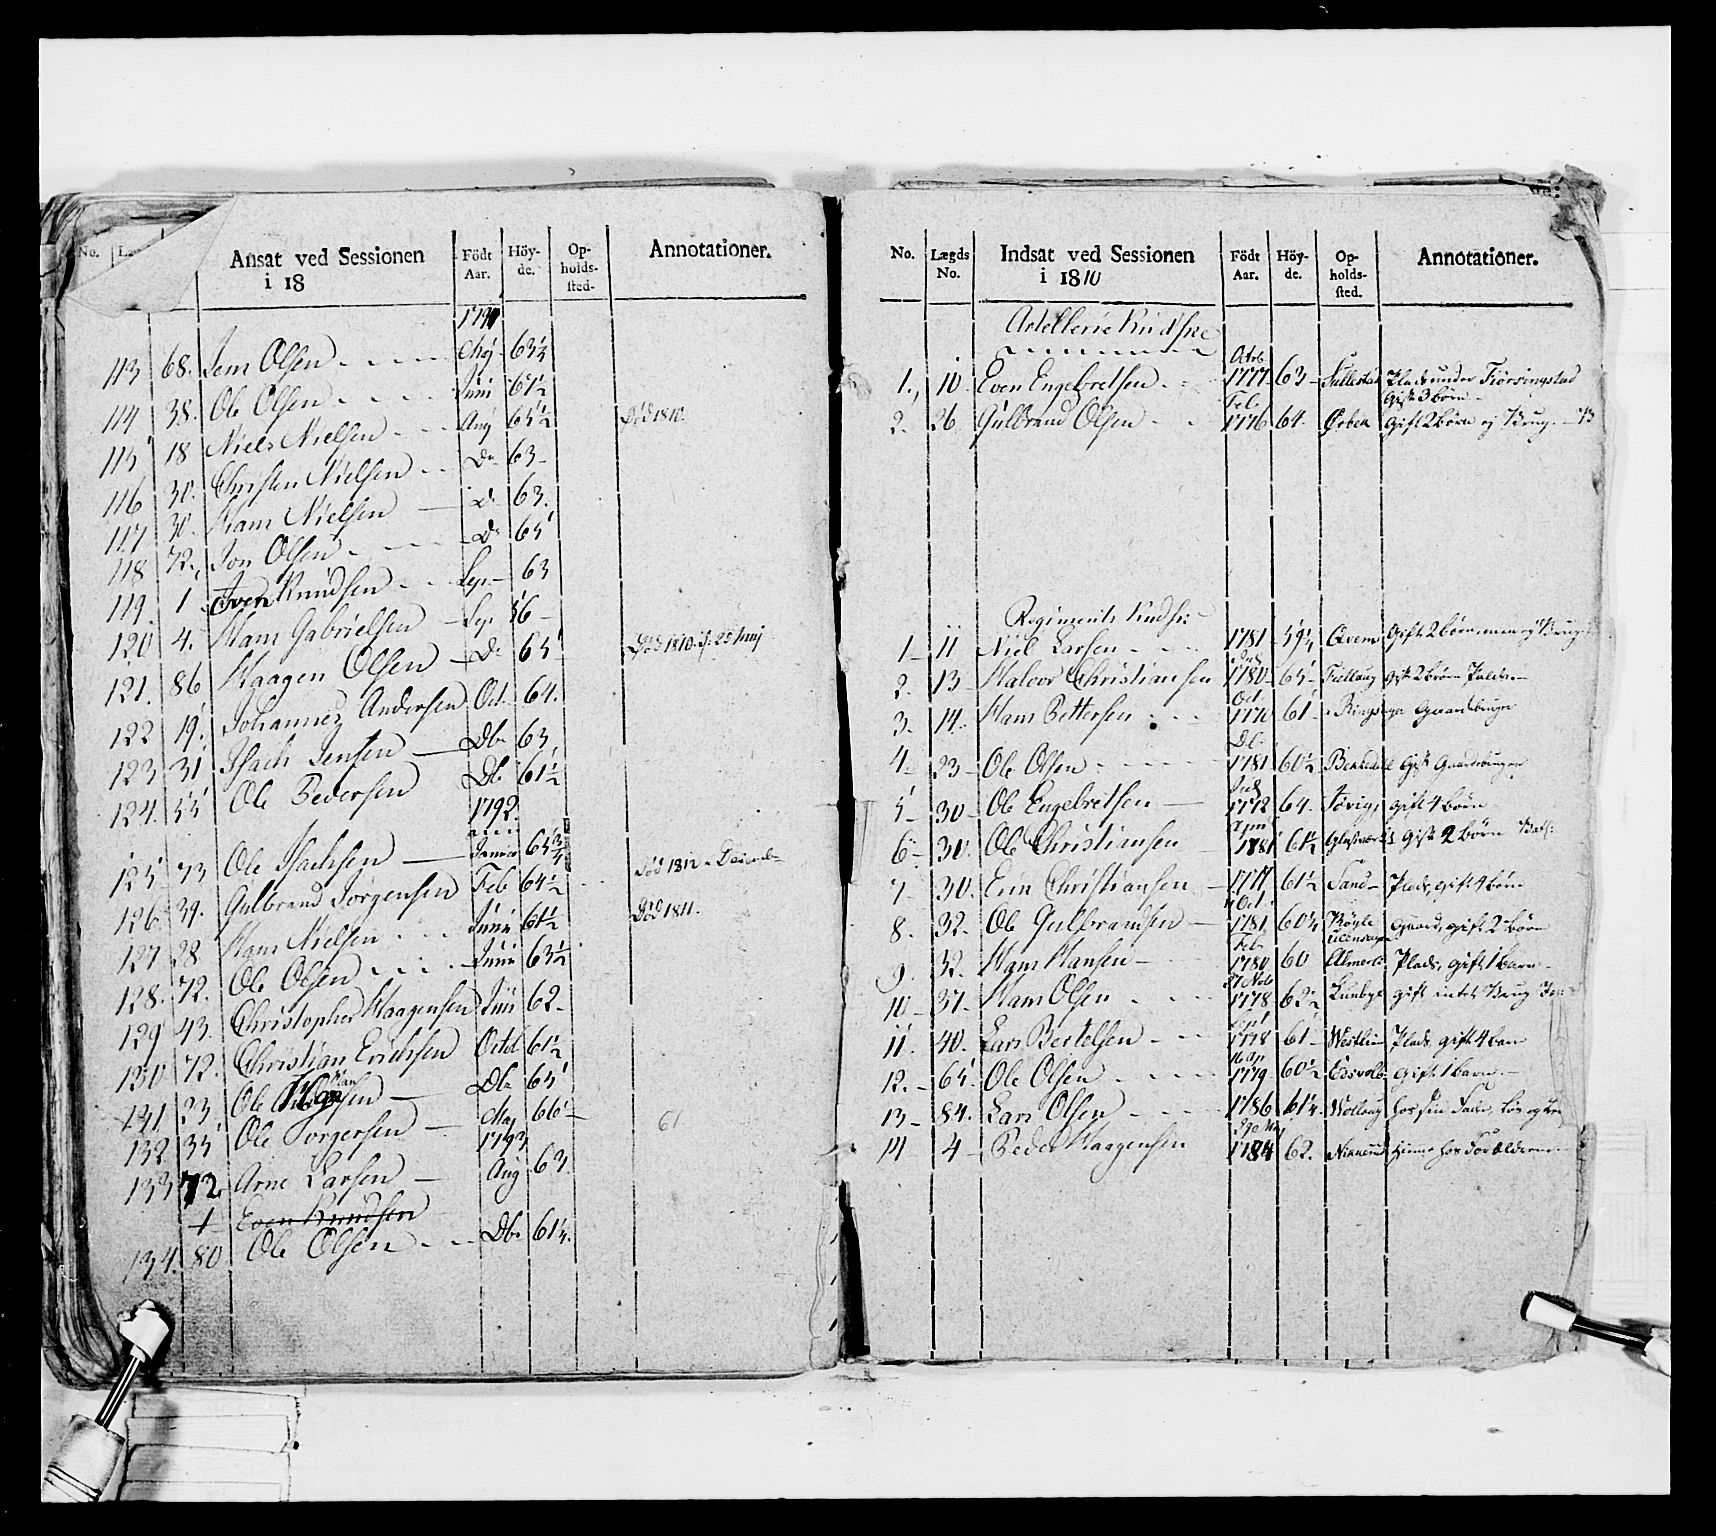 No. Ansat ved Sessionen i 18 Födt Aar. Höyde. Opholdssted. Annotationer.
113 68. Jem Olsen Maj 63¼
114 38. Ole Olsen Juni 61½
115 18 Niels Nielsen Aug 65½ Död 1810.
116 30. Christen Nielsen Do 63
117 30. Hans Nielsen Do 63.
118 72. Jon Olsen Do 65
119. 1 Iver Knudsen Sep. 63
120 4. Hans Gabrielsen Sep 56
121. 86 Haagen Olsen Do 65 Död 1810 25 Maj
122 19. Johannes Andersen Oct. 64.
123 31 Isach Jensen Dbr 63
124. 55 Ole Pedersen Dbr 61½
1792.
125 73 Ole Isachsen Januar 65¾ Död 1812 Decemb
126 39. Gulbrand Jörgensen Feb 64½
127 28 Hans Nielsen Juni 61½ Död 1811.
128. 72. Ole Olsen Juni 63½
129 43. Christopher Haagensen Juni 62
130 72. Christian Erichsen Octb 61½
131 23 Ole Hansen Dbr 65
132 35 Ole Torgersen Maj 66 61
1793
133 72 Arne Larsen Aug 63
1 Even Knudsen
134. 80 Ole Olsen Dbr 61¼.
No. Lægds No. Indsat ved Sessionen i 1810 Födt Aar. Höyde. Opholdssted. Annotationer.
Artellerie Kudske
1. 10. Even Engebretsen Octob 1777 63 Sullestad Plads under Fiörsingstad
Gift 3 börn
2. 26 Gulbrand Olsen Feb. 1776 64. Ørbek Gift 2 börn ej Brug.
Regiments Kudske
1 11 Niel Larsen 1781 59¼ Qvem Gift 2 börn, men ej Brug
2. 13 Halvor Christiansen 1780 65 Fiellaug Gift 2 börn
3. 14. Hans Pettersen Oct 1770 61 Ringsager Gaardbruger
4 23 Ole Olsen Db. 1781 60½ Gift Gaardbruger
5 30 Ole Engebretsen 1772 64. gift 4 börn
6 30. Ole Christiansen 1781 61½ Gift 2 börn
7 30. Erin Christiansen 1777 61½ Sand Plads, gift 4 börn
8. 32. Ole Gulbrandsen Oct. 1781 60¼ Böyle Gaard, gift 2 börn
9. 32. Hans Hansen Feb 1780 60 Almerli Plads, gift 1 barn
10 37. Hans Olsen 27 Nov 1778 62½ Lunbye Gift intet Brug
11. 40. Lars Bertelsen 1778 61 Westlien Plads, gift 4 barn
12. 65. Ole Olsen 1779 60½ Edsvold Gift 1 barn.
13 84. Lars Olsen 1786 61¼ Wollaug hos sin Fader,
14 4 Peder Haagensen 1784 62. hiemme hos Forældrene